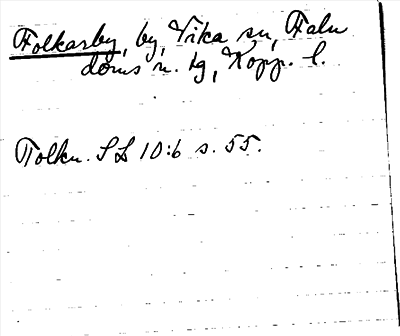 Folkarby, by, Vika sn, Falu
doms n. tg, Kopp. l.
Tolkn. SL 10:6 s. 55.